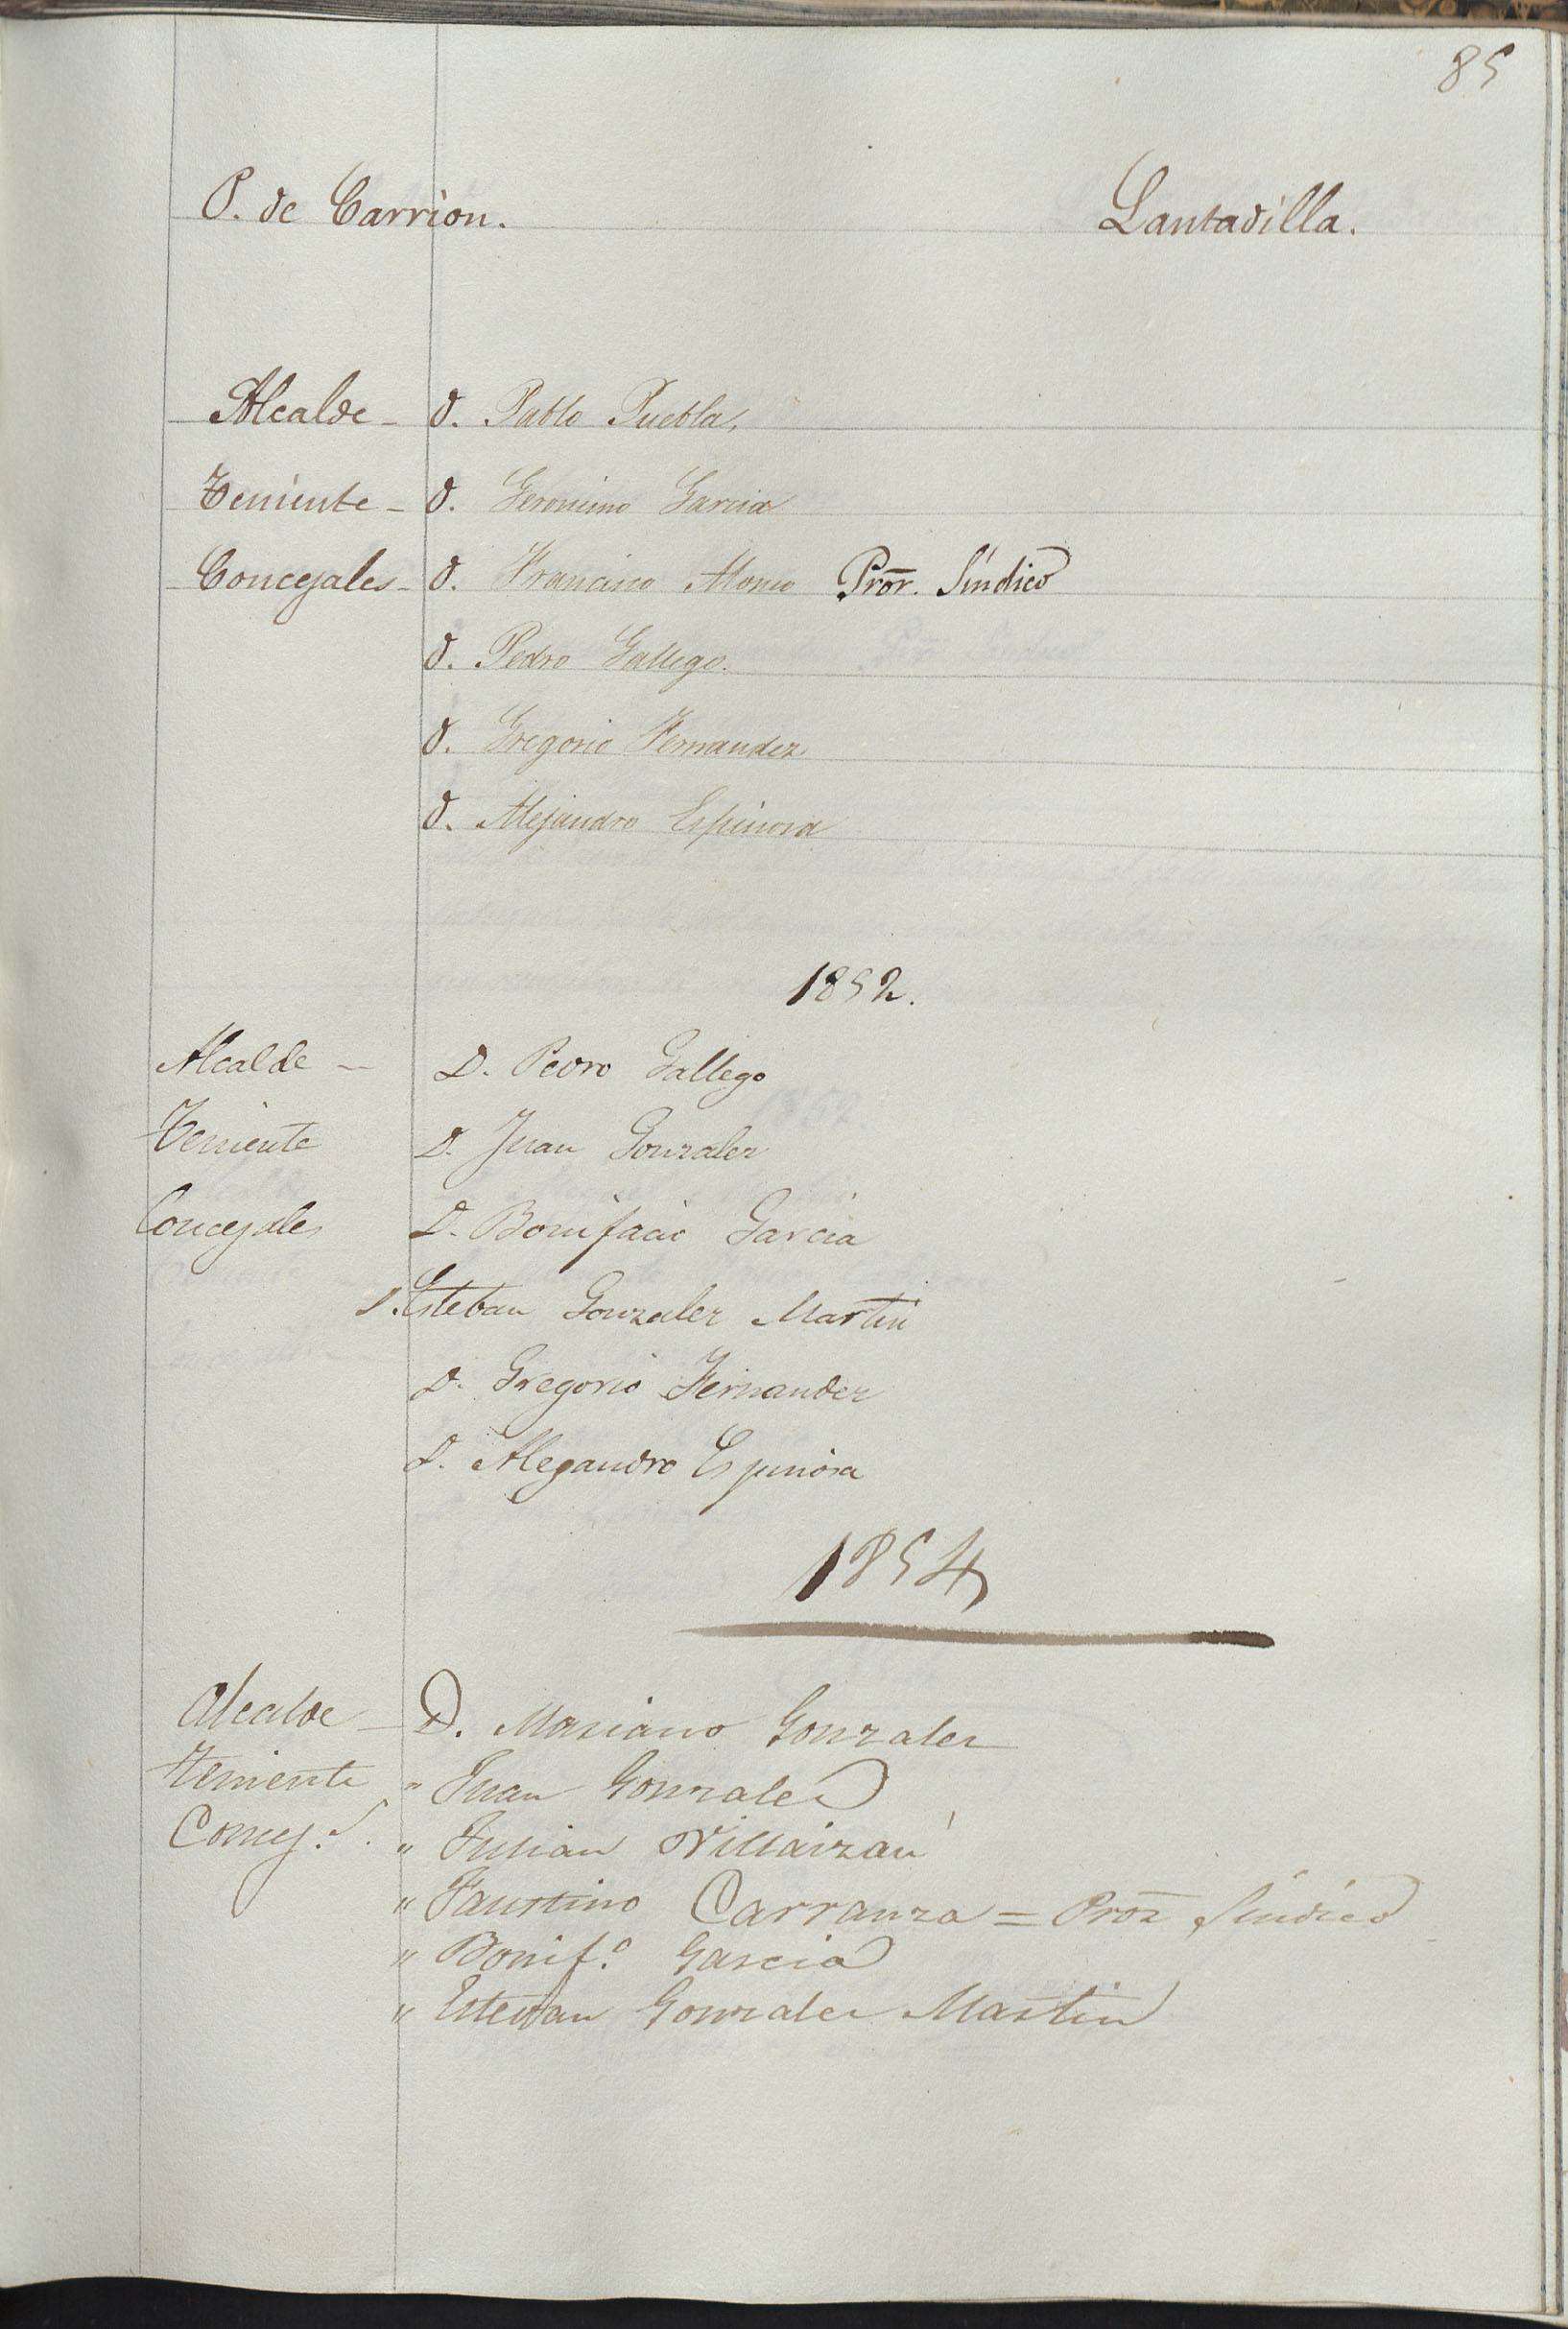 85
P. de Carrion. Lantadilla.
Alcalde - D. Pablo Puebla.
Teniente - D. Geronimo Garcia
Concejales - D. Francisco Alonso Pror. Síndico
D. Pedro Gallego.
D. Gregorio Fernandez.
D. Alejandro Espinosa
1852.
Alcalde - D. Pedro Gallego
Teniente D. Juan Gonzalez
Concejales D. Bonifacio Garcia
D. Esteban Gonzalez Martin
D. Gregorio Fernandez
D. Alegandro Espinosa
1854
Alcalde - D. Mariano Gonzalez
Teniente " Juan Gonzalez
Concej.s " Julian Villaizán
" Faustino Carranza = Pror Síndico
" Bonif.o Garcia
" Estevan Gonzalez Martin